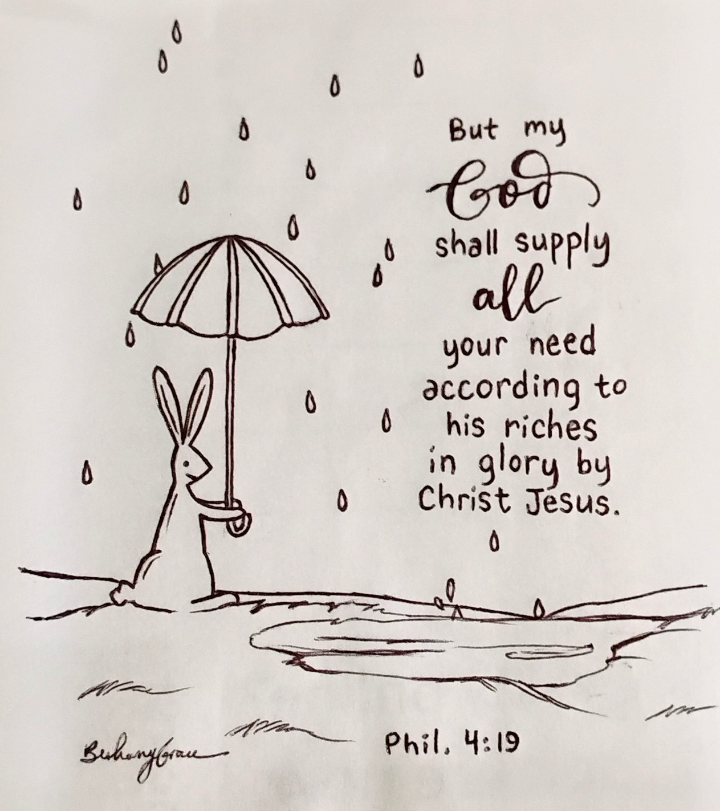 But my
God
shall supply
all
your need
according to
his riches
in glory by
Christ Jesus.
Phil. 4:19
BethanyGrace